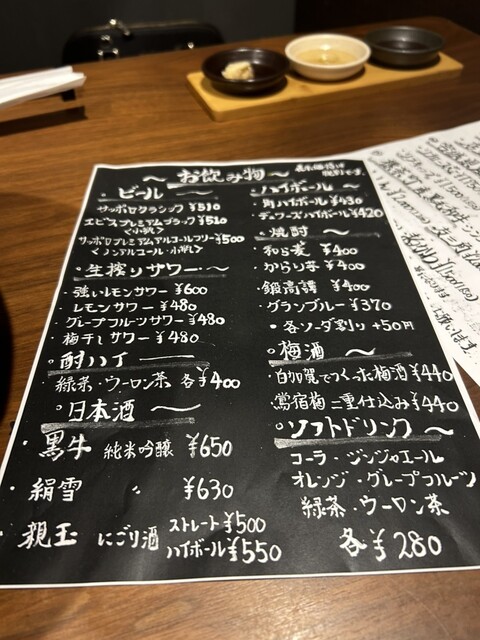 〜お飲み物〜
表示価格は
税別です。
・ビール 〜
サッポロクラシック ¥510
エビスプレミアムブラック ¥510
<小瓶>
サッポロプレミアムアルコールフリー ¥500
<ノンアルコール・小瓶>
・生搾りサワー〜
・強いレモンサワー ¥600
・レモンサワー ¥480
・グレープフルーツサワー ¥480
・梅干しサワー ¥480
・酎ハイ
緑茶・ウーロン茶 各¥400
・日本酒 〜
・黒牛 純米吟醸 ¥650
・絹雪 〃 ¥630
・親玉 にごり酒 ストレート¥500
ハイボール¥550
・ハイボール 〜
・角ハイボール ¥430
・デュワーズハイボール ¥420
・焼酎 〜
・和ら麦 ¥400
・からり芋 ¥400
・銀高譚 ¥400
・グランブルー ¥370
・各ソーダ割り +50円
・梅酒 〜
・白加賀でつくった梅酒 ¥440
・鶯宿梅 二重仕込み ¥440
・ソフトドリンク〜
コーラ・ジンジャエール
オレンジ・グレープフルーツ
緑茶・ウーロン茶
各¥280